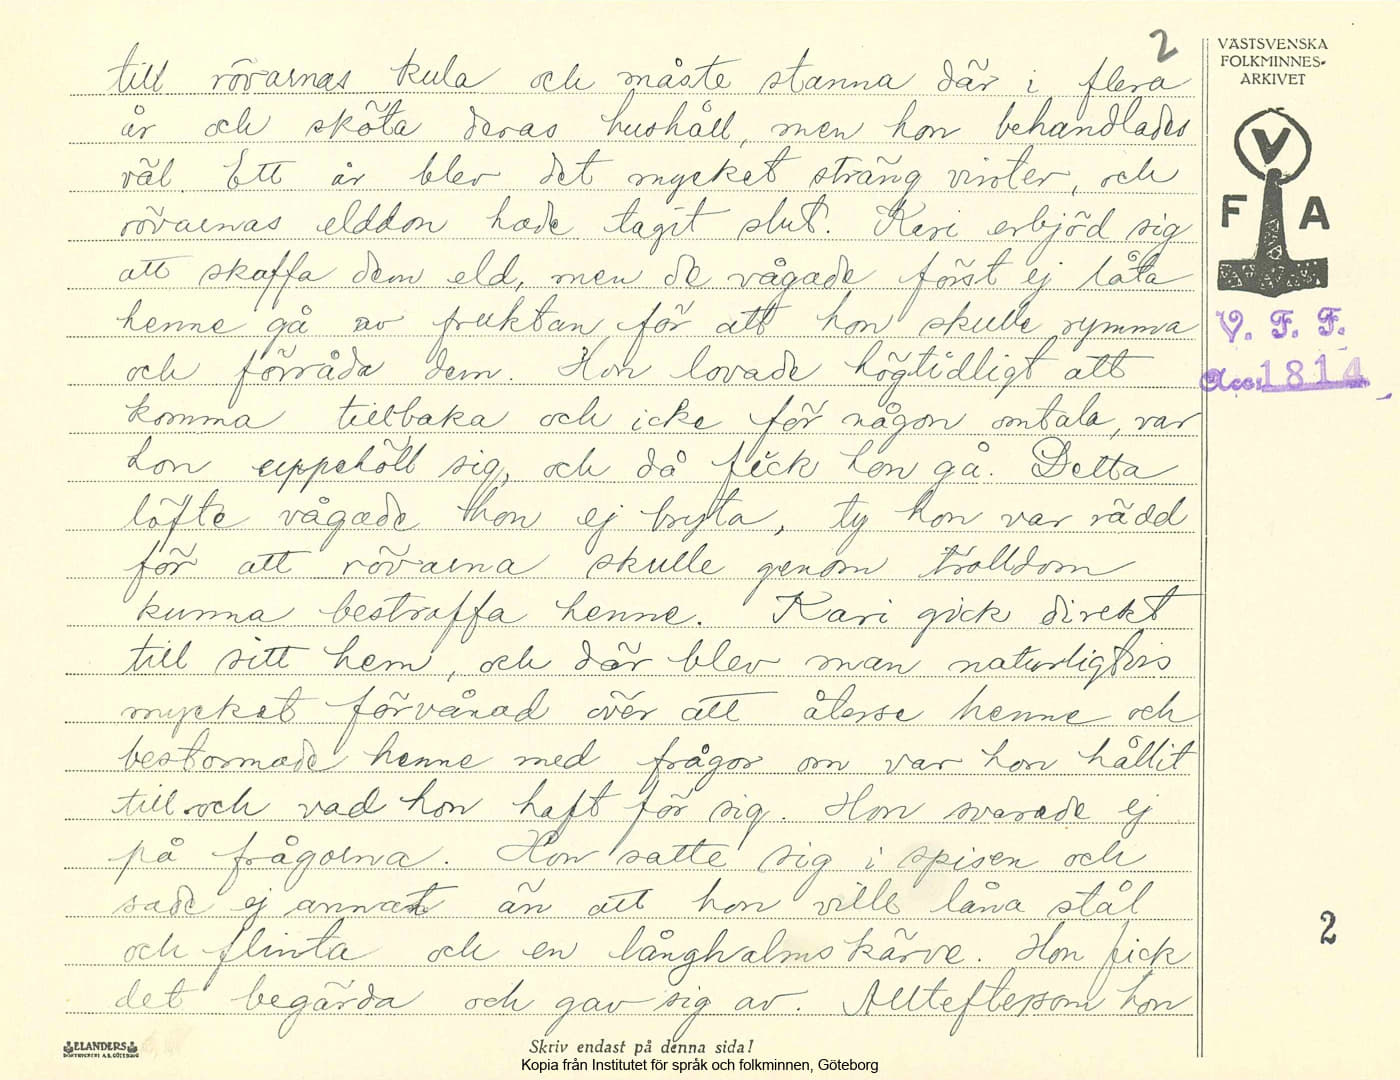 2
VÄSTSVENSKA
FOLKMINNES-
ARKIVET
till rövarnas kula och måste stanna där i flera
år och sköta deras hushåll, men hon behandlades
väl. Ett år blev det mycket sträng vinter, och
rövarnas elddon hade tagit slut. Kari erbjöd sig
att skaffa dem eld, men de vågade först ej låta
henne gå av fruktan för att hon skulle rymma
och förråda dem Hon lovade högtidligt att
komma tillbaka och icke för någon omtala, var
hon uppehöll sig, och då fick hon gå. Detta
löfte vågade hon ej bryta, ty hon var rädd
för att rövarna skulle genom trolldom
kunna bestraffa henne. Kari gick direkt
till sitt hem, och där blev man naturligtvis
mycket förvånad över att återse henne och
bestormade henne med frågor om var hon hållit
till och vad hon haft för sig. Hon svarade ej
på frågorna. Hon satte sig i spisen och
sade ej annat än att hon ville låna stål
och flinta och en långhalmskärve. Hon fick
det begärda och gav sig av. Allteftersom hon
V
F A
V. F. F.
Acc. 1814
2
ELANDERS
BOKTRYCKERI A.B. GÖTEBORG
Skriv endast på denna sida!
Kopia från Institutet för språk och folkminnen, Göteborg